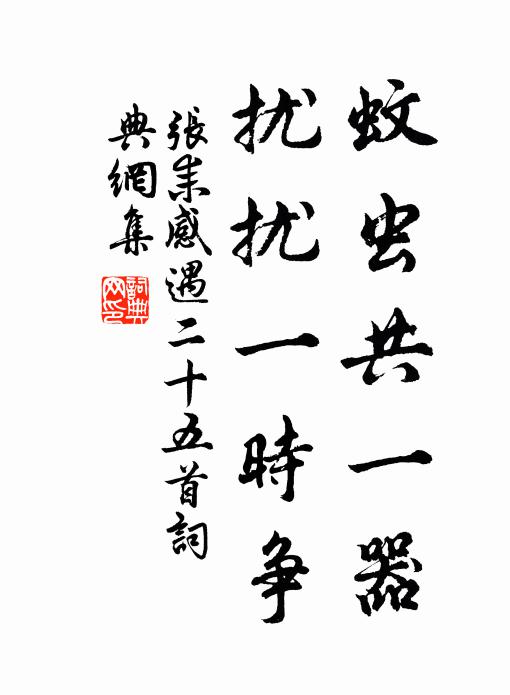 蚊虫共一器
扰扰一時争
張耒感遇二十五首詞
典網集
詞典
网印